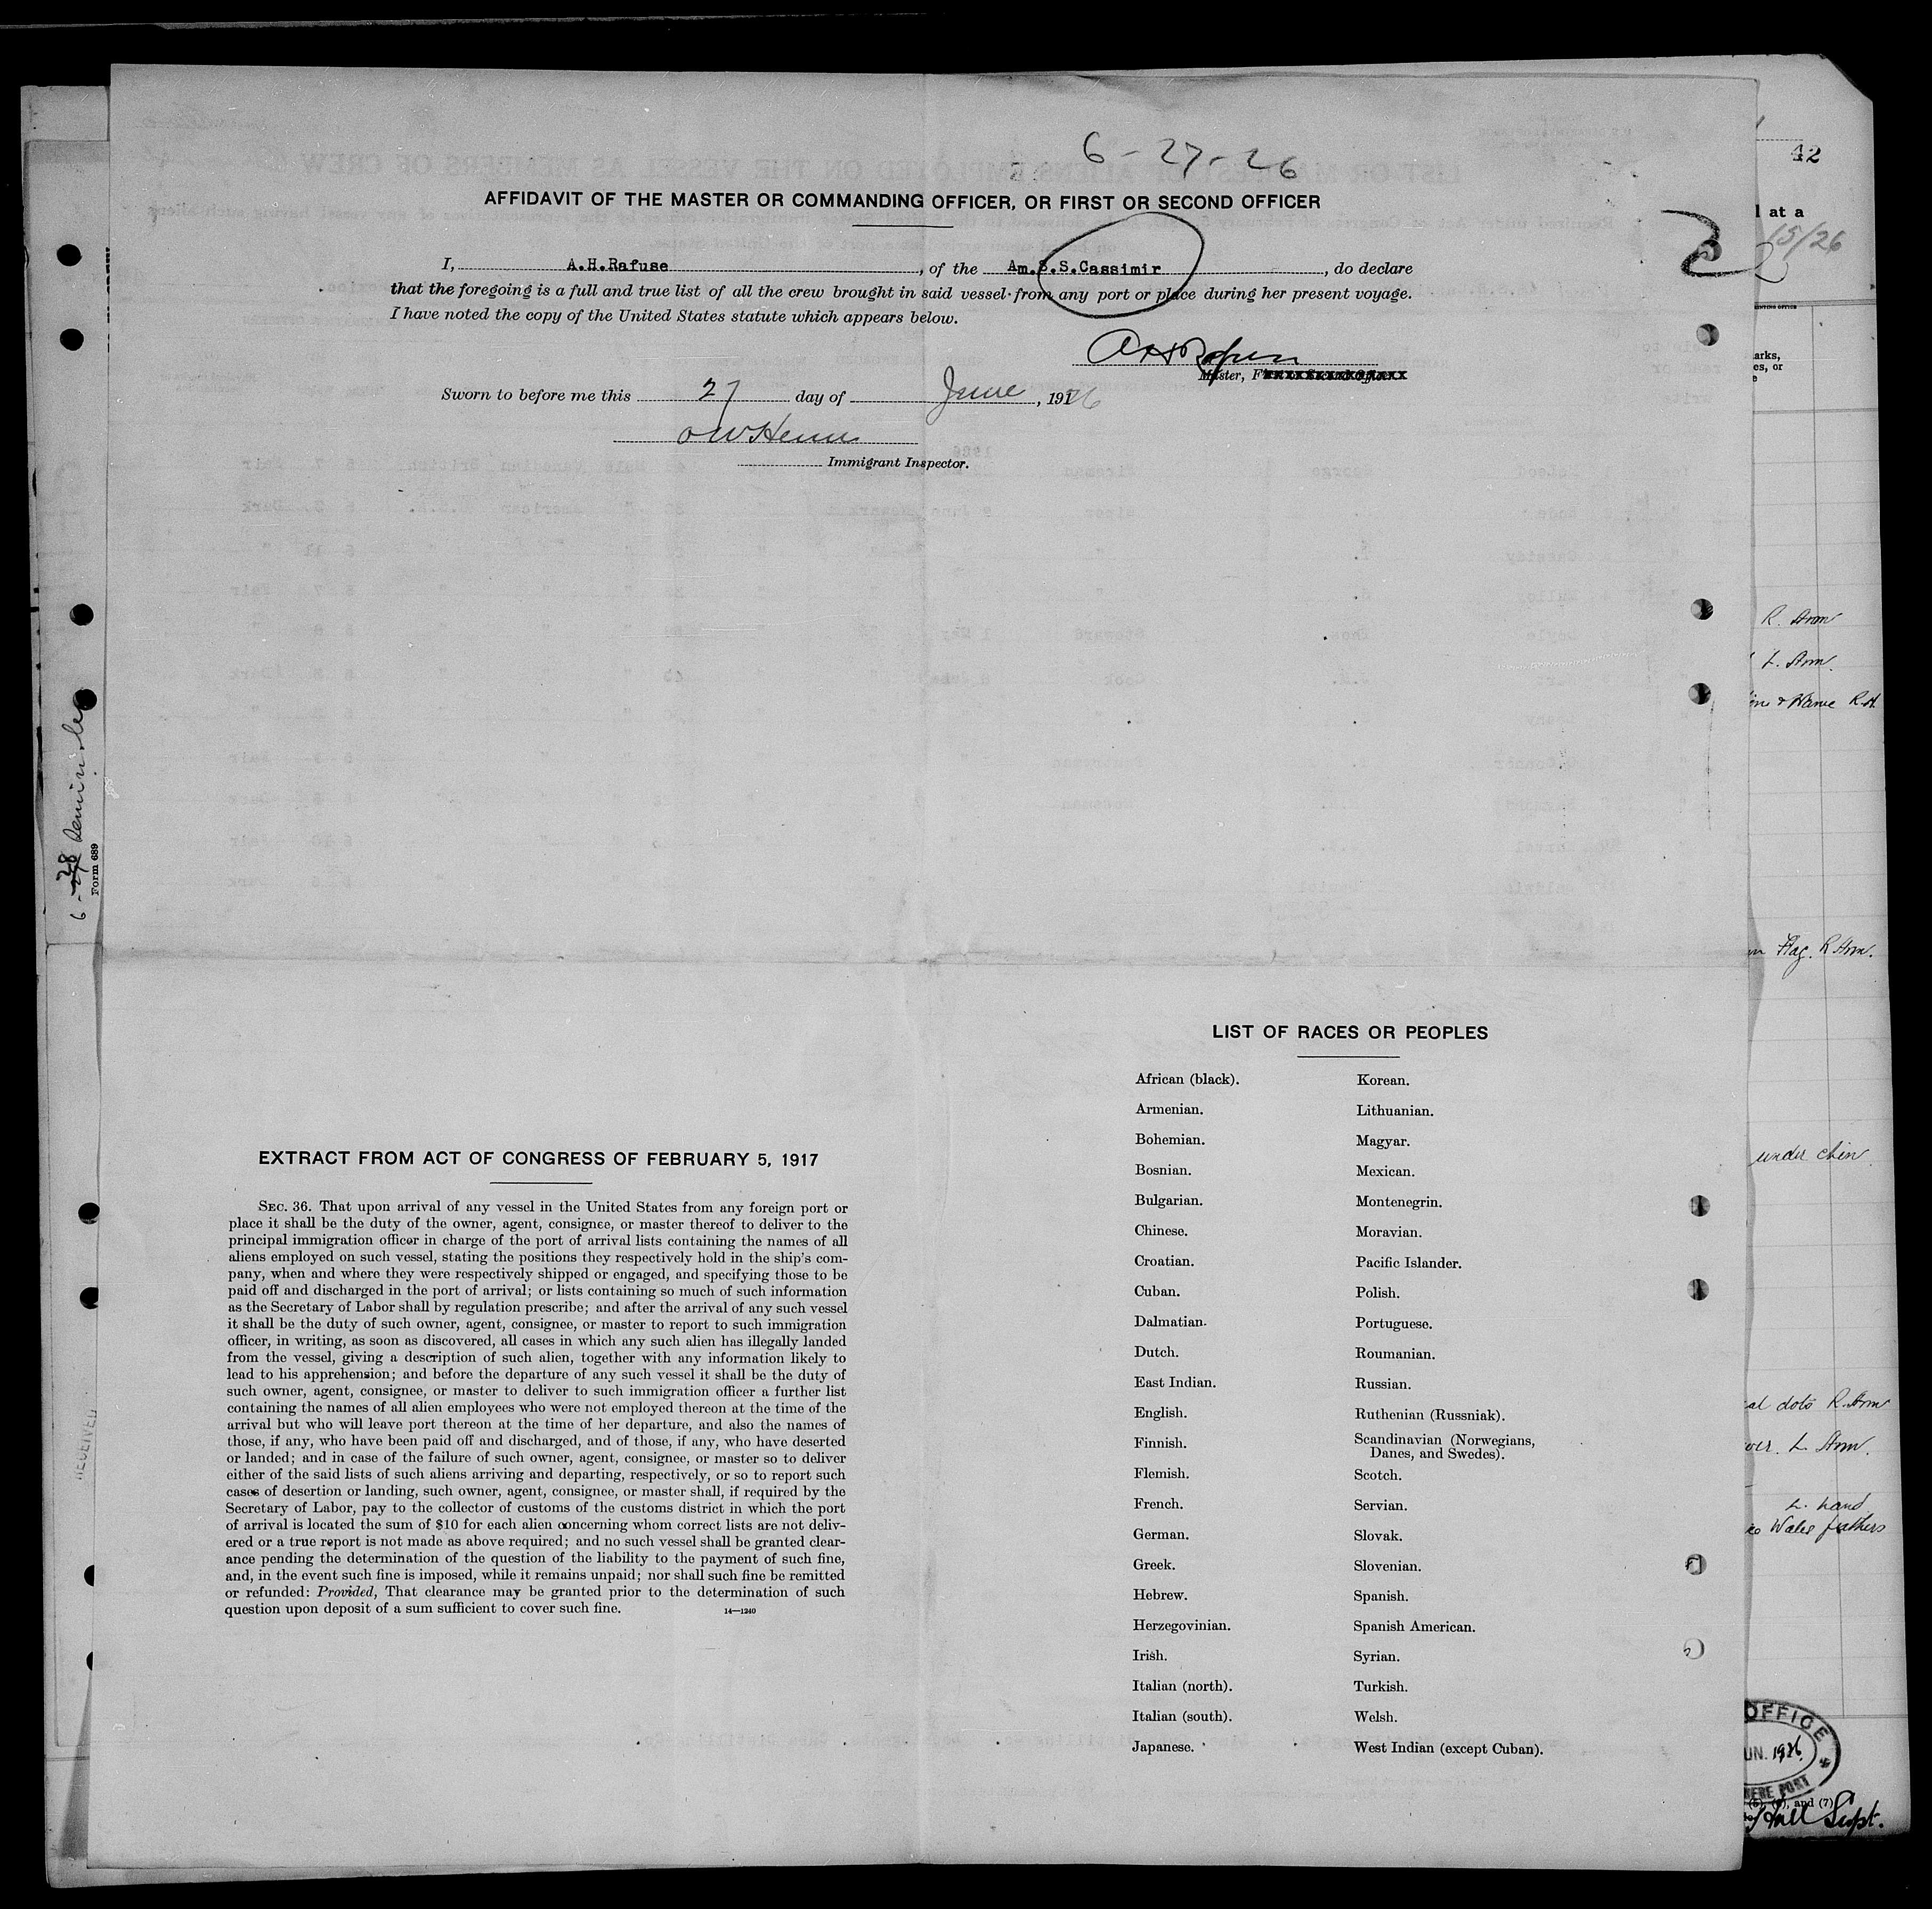 6-27-26
AFFIDAVIT OF THE MASTER OR COMMANDING OFFICER, OR FIRST OR SECOND OFFICER
I, A.H.Rafuse, of the Am.S.S.Cassimir, do declare
that the foregoing is a full and true list of all the crew brought in said vessel from any port or place during her present voyage.
I have noted the copy of the United States statute which appears below.
Master, F
Sworn to before me this 27 day of June, 1926
Immigrant Inspector.
LIST OF RACES OR PEOPLES
African (black).
Armenian.
Bohemian.
Bosnian.
Bulgarian.
Chinese.
Croatian.
Cuban.
Dalmatian.
Dutch.
East Indian.
English.
Finnish.
Flemish.
French.
German.
Greek.
Hebrew.
Herzegovinian.
Irish.
Italian (north).
Italian (south).
Japanese.
Korean.
Lithuanian.
Magyar.
Mexican.
Montenegrin.
Moravian.
Pacific Islander.
Polish.
Portuguese.
Roumanian.
Russian.
Ruthenian (Russniak).
Scandinavian (Norwegians,
Danes, and Swedes).
Scotch.
Servian.
Slovak.
Slovenian.
Spanish.
Spanish American.
Syrian.
Turkish.
Welsh.
West Indian (except Cuban).
EXTRACT FROM ACT OF CONGRESS OF FEBRUARY 5, 1917
SEC. 36. That upon arrival of any vessel in the United States from any foreign port or
place it shall be the duty of the owner, agent, consignee, or master thereof to deliver to the
principal immigration officer in charge of the port of arrival lists containing the names of all
aliens employed on such vessel, stating the positions they respectively hold in the ship's com-
pany, when and where they were respectively shipped or engaged, and specifying those to be
paid off and discharged in the port of arrival; or lists containing so much of such information
as the Secretary of Labor shall by regulation prescribe; and after the arrival of any such vessel
it shall be the duty of such owner, agent, consignee, or master to report to such immigration
officer, in writing, as soon as discovered, all cases in which any such alien has illegally landed
from the vessel, giving a description of such alien, together with any information likely to
lead to his apprehension; and before the departure of any such vessel it shall be the duty of
such owner, agent, consignee, or master to deliver to such immigration officer a further list
containing the names of all alien employees who were not employed thereon at the time of the
arrival but who will leave port thereon at the time of her departure, and also the names of
those, if any, who have been paid off and discharged, and of those, if any, who have deserted
or landed; and in case of the failure of such owner, agent, consignee, or master so to deliver
either of the said lists of such aliens arriving and departing, respectively, or so to report such
cases of desertion or landing, such owner, agent, consignee, or master shall, if required by the
Secretary of Labor, pay to the collector of customs of the customs district in which the port
of arrival is located the sum of $10 for each alien concerning whom correct lists are not deliv-
ered or a true report is not made as above required; and no such vessel shall be granted clear-
ance pending the determination of the question of the liability to the payment of such fine,
and, in the event such fine is imposed, while it remains unpaid; nor shall such fine be remitted
or refunded: Provided, That clearance may be granted prior to the determination of such
question upon deposit of a sum sufficient to cover such fine.
14—1240
Form 689
RECEIVED
42
at a
15/26
R. Arm
L. Arm.
Flag. R Arm.
under chin
dots R. Arm
L. Arm.
L. hand
Wales feathers
OFFICE
UN. 1926
and (7)
Supt.